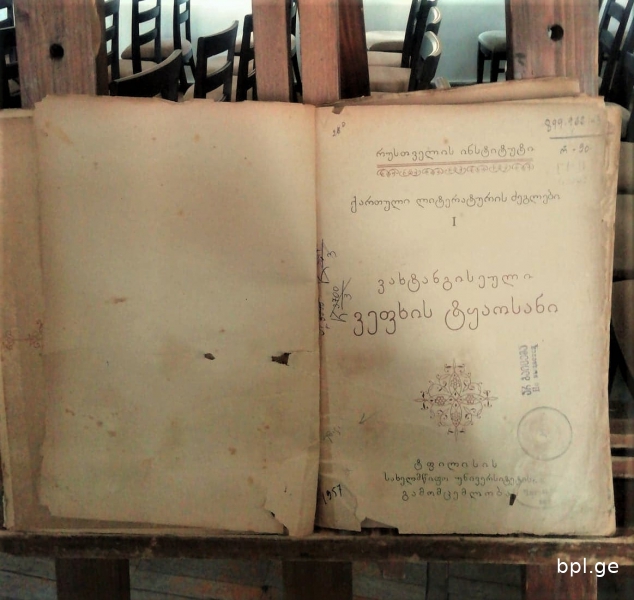 რუსთველის ინსტიტუტი
ქართული ლიტერატურის ძეგლები
I
ვახტანგისეული
ვეფხის ტყაოსანი
ტფილისის
სახელმწიფო უნივერსიტეტის
გამომცემლობა
1957
bpl.ge